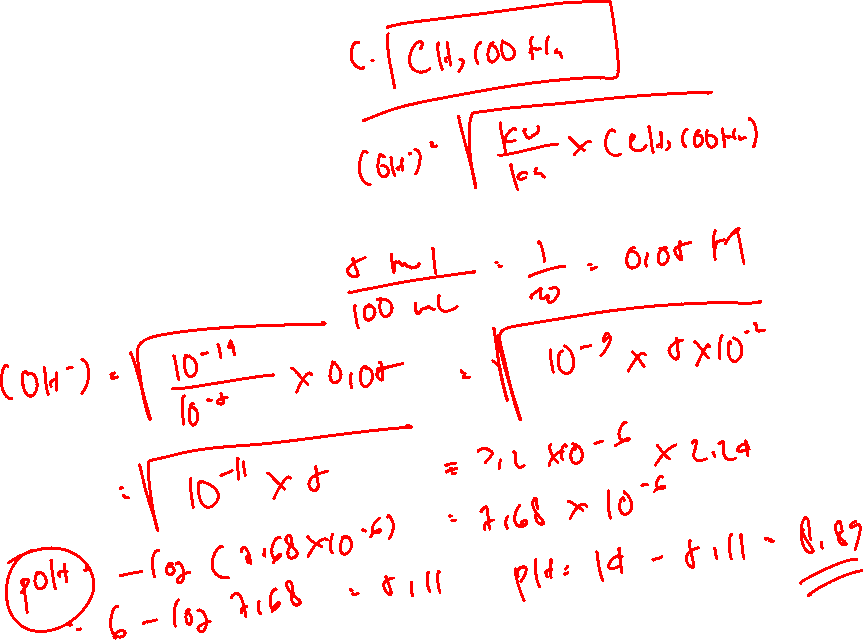 C. CH₃COONa
(OH⁻) = √(Kw/Ka × (CH₃COONa))
5 mol / 100 mL = 1/20 = 0,05 M
(OH⁻) = √(10⁻¹⁴/10⁻⁵ × 0,05) = √(10⁻⁹ × 5×10⁻²)
= √(10⁻¹¹ × 5) = 3,2 × 10⁻⁶ × 2,24
= 7,68 × 10⁻⁶
pOH = -log (7,68×10⁻⁶)
= 6 - log 7,68 = 5,11 pH = 14 - 5,11 = 8,89